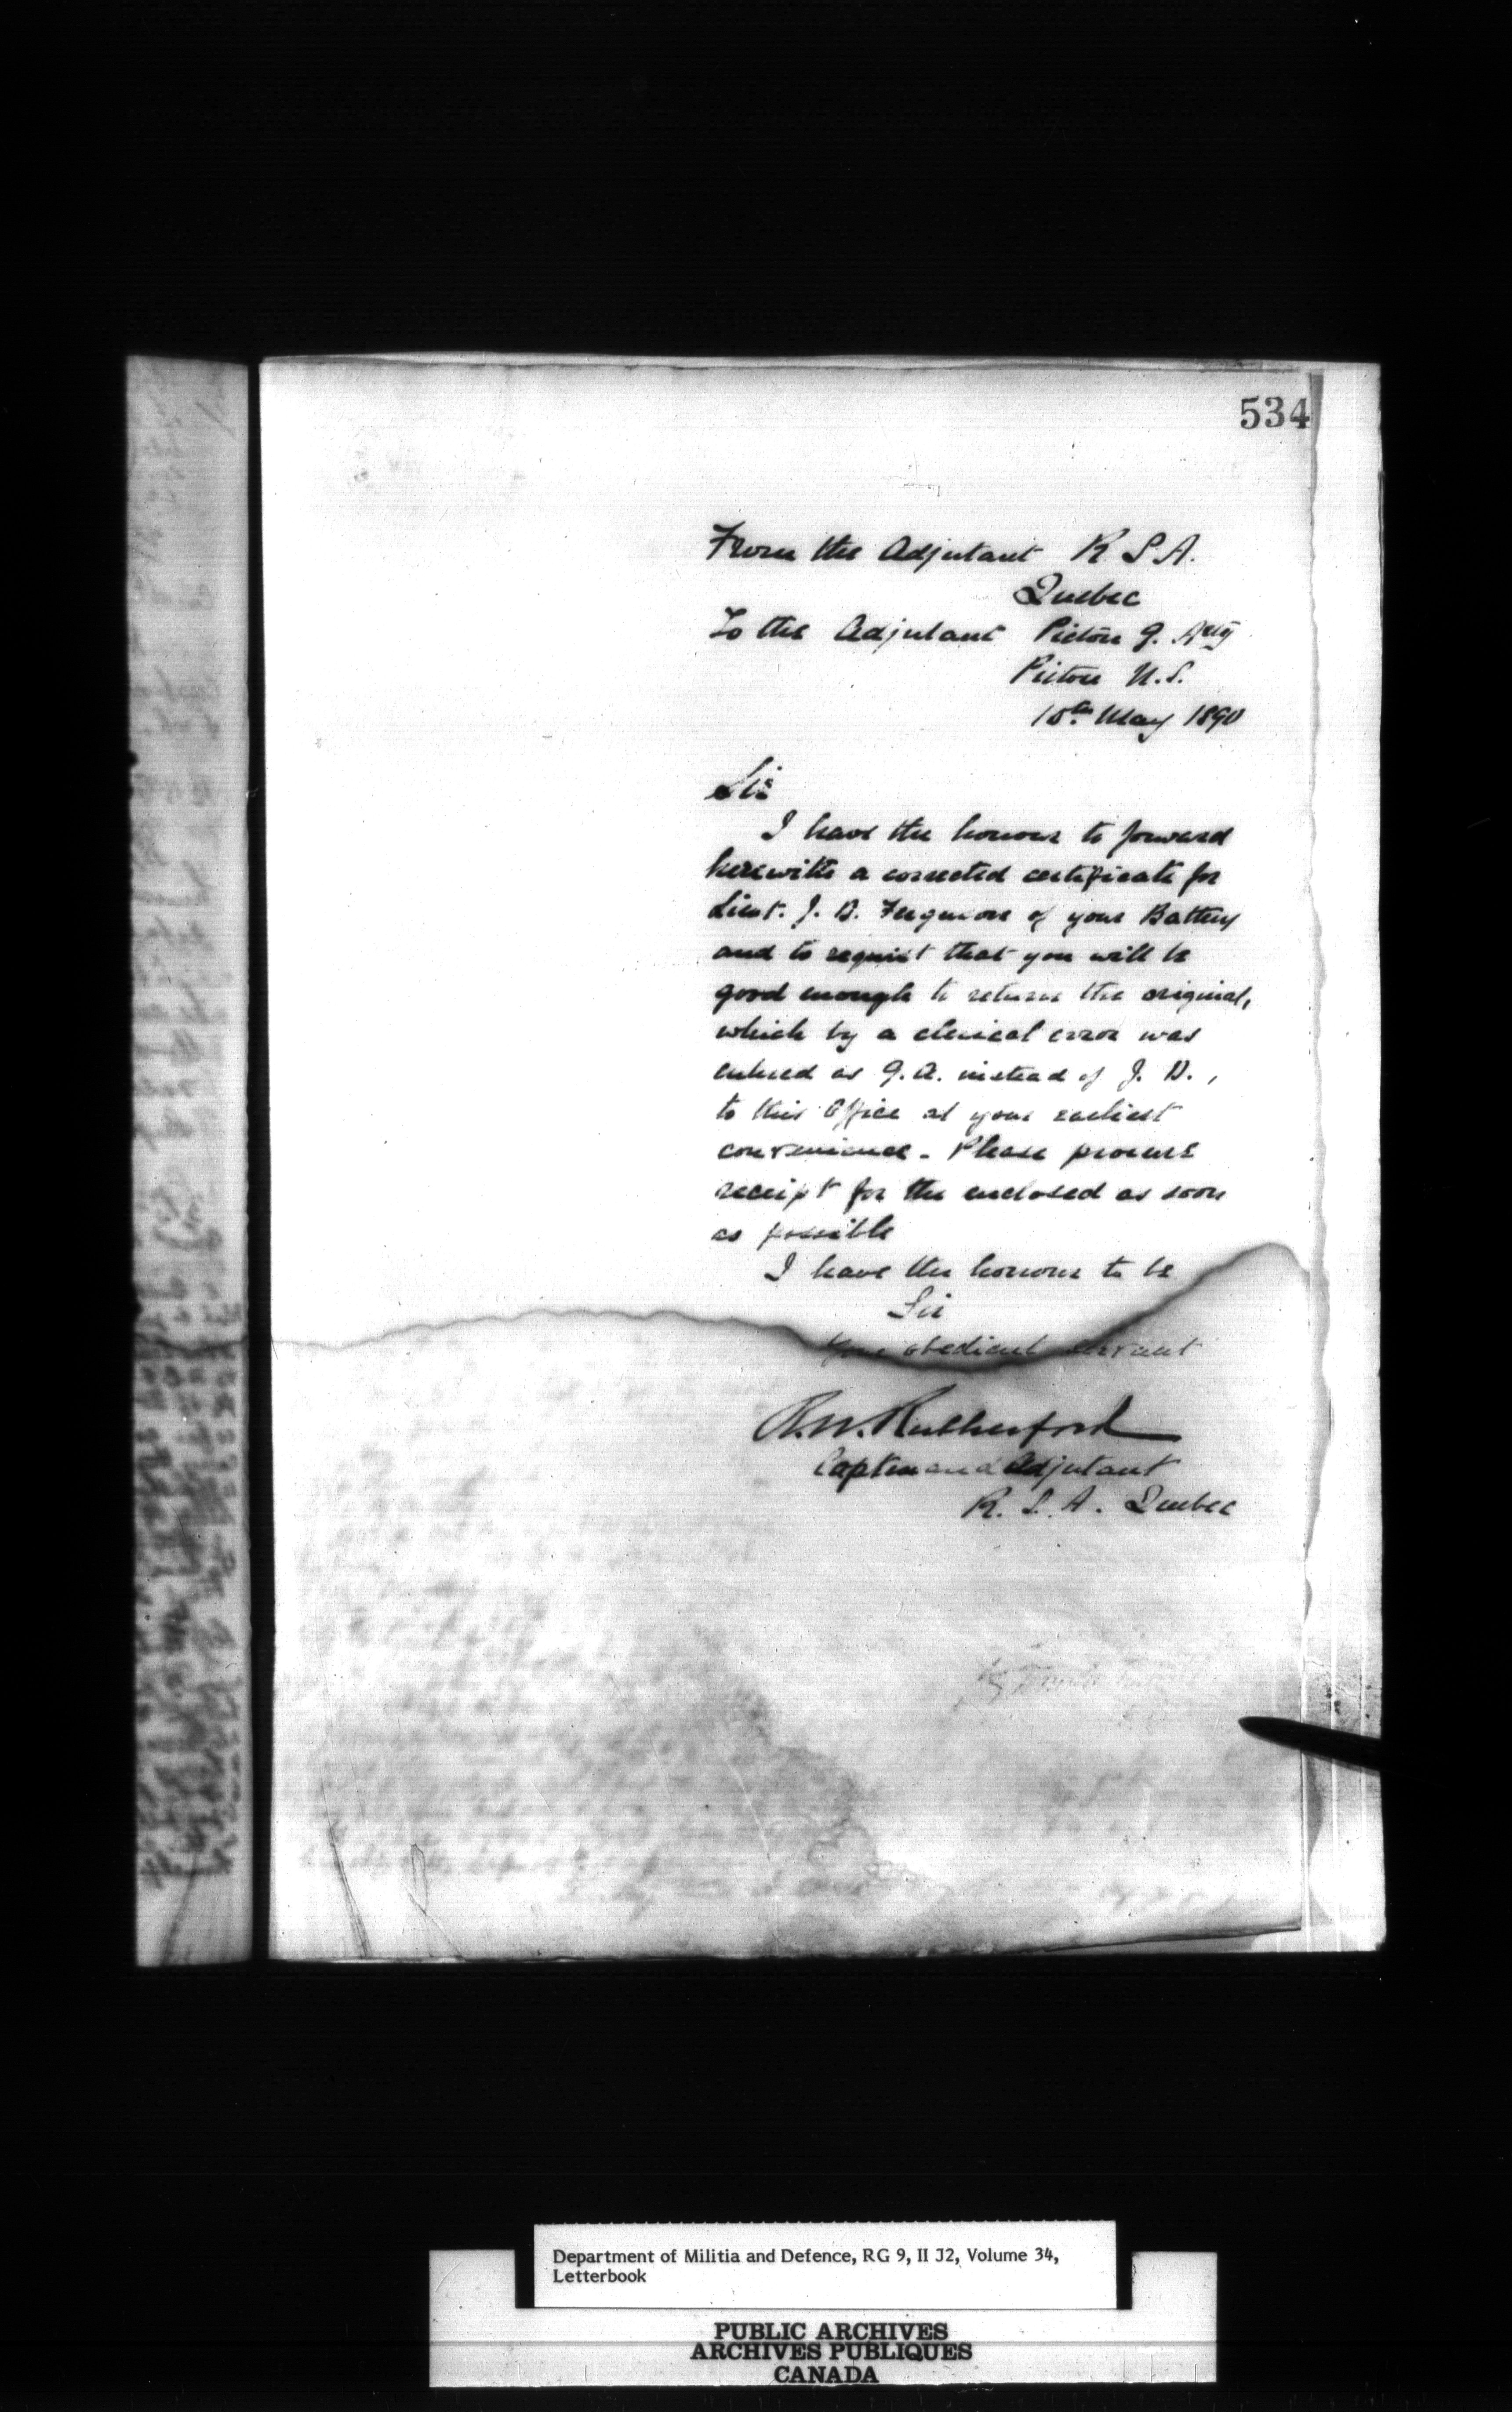 534
From the Adjutant R S A.
Quebec
To the Adjutant Pictou G. Arty
Pictou N.S.
10th May 1890
Sir
I have the honour to forward
herewith a corrected certificate for
Lieut. J. D. Ferguson of your Battery
and to request that you will be
good enough to return the original,
which by a clerical error was
entered as G. A. instead of J. D.,
to this Office at your earliest
convenience. Please procure
receipt for the enclosed as soon
as possible
I have the honour to be
Sir
Your obedient servant
R.W. Rutherford
Captain and Adjutant
R. S. A. Quebec
Department of Militia and Defence, RG 9, II J2, Volume 34,
Letterbook
PUBLIC ARCHIVES
ARCHIVES PUBLIQUES
CANADA